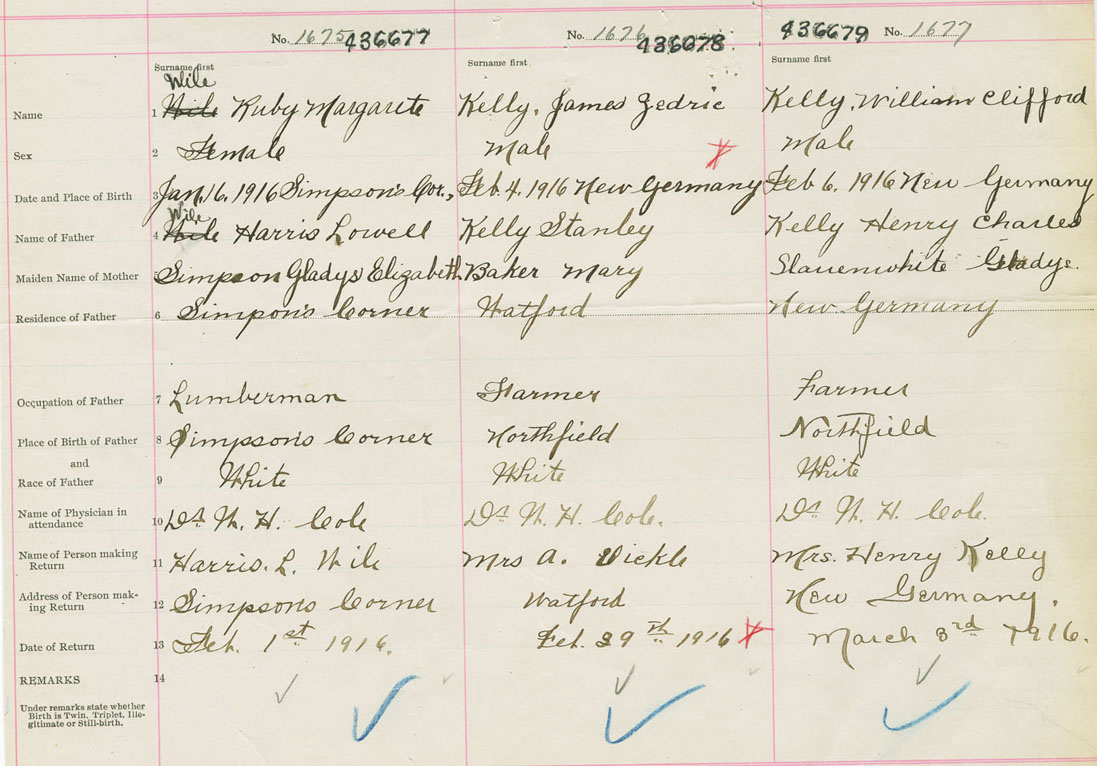 No. 1675 436677 No. 1676 436678 436679 No. 1677
Surname first Surname first Surname first
Wile
Name 1 Wile Ruby Margarete Kelly, James Zedric Kelly, William Clifford
Sex 2 Female Male Male
Date and Place of Birth 3 Jan. 16, 1916 Simpson's Cor., Feb 4. 1916 New Germany Feb 6. 1916 New Germany
Wile
Name of Father 4 Wile Harris Lowell Kelly Stanley Kelly Henry Charles
Maiden Name of Mother 5 Simpson Gladys Elizabeth Baker Mary Slauenwhite Gladys.
Residence of Father 6 Simpon's Corner Watford New Germany
Occupation of Father 7 Lumberman Farmer Farmer
Place of Birth of Father 8 Simpson's Corner Northfield Northfield
and
Race of Father 9 White White White
Name of Physician in
attendance 10 Dr. W. H. Cole Dr. W. H. Cole. Dr. W. H. Cole.
Name of Person making
Return 11 Harris. L. Wile Mrs A. Mrs. Henry Kelly
Address of Person mak-
ing Return 12 Simpsons Corner Watford New Germany.
Date of Return 13 Feb. 1st 1916. Feb. 29th 1916 March 3rd 1916.
REMARKS 14
Under remarks state whether
Birth is Twin, Triplet, Ille-
gitimate or Still-birth.